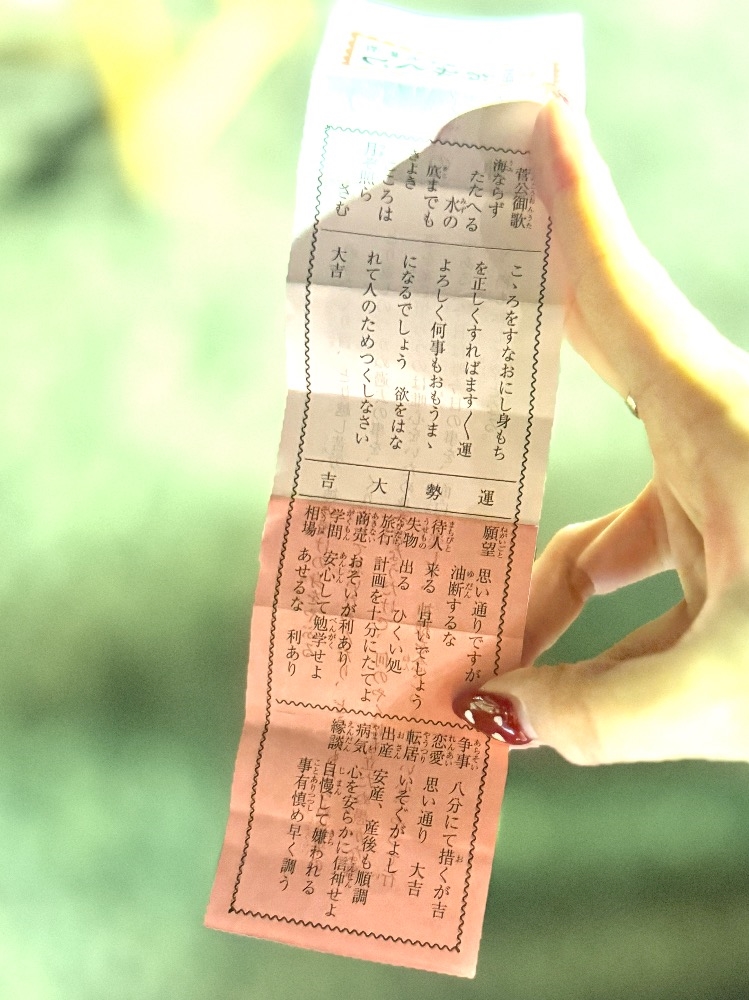 菅公御歌
海ならず
たたへる
水の
底までも
きよき
こころは
照ら
さむ
こゝろをすなおにし身もち
を正しくすればます〱運
よろしく何事もおもうまゝ
になるでしょう 欲をはな
れて人のためつくしなさい
大吉
運勢 大吉
願望 思い通りですが
油断するな
待人 来る 早いでしょう
失物 出る ひくい処
旅行 計画を十分にたてよ
商売 おそいが利あり
学問 安心して勉学せよ
相場 あせるな 利あり
争事 八分にて措くが吉
恋愛 思い通り 大吉
転居 いそぐがよし
出産 安産、産後も順調
病気 心を安らかに信神せよ
縁談 自慢して嫌われる
事有慎め早く調う